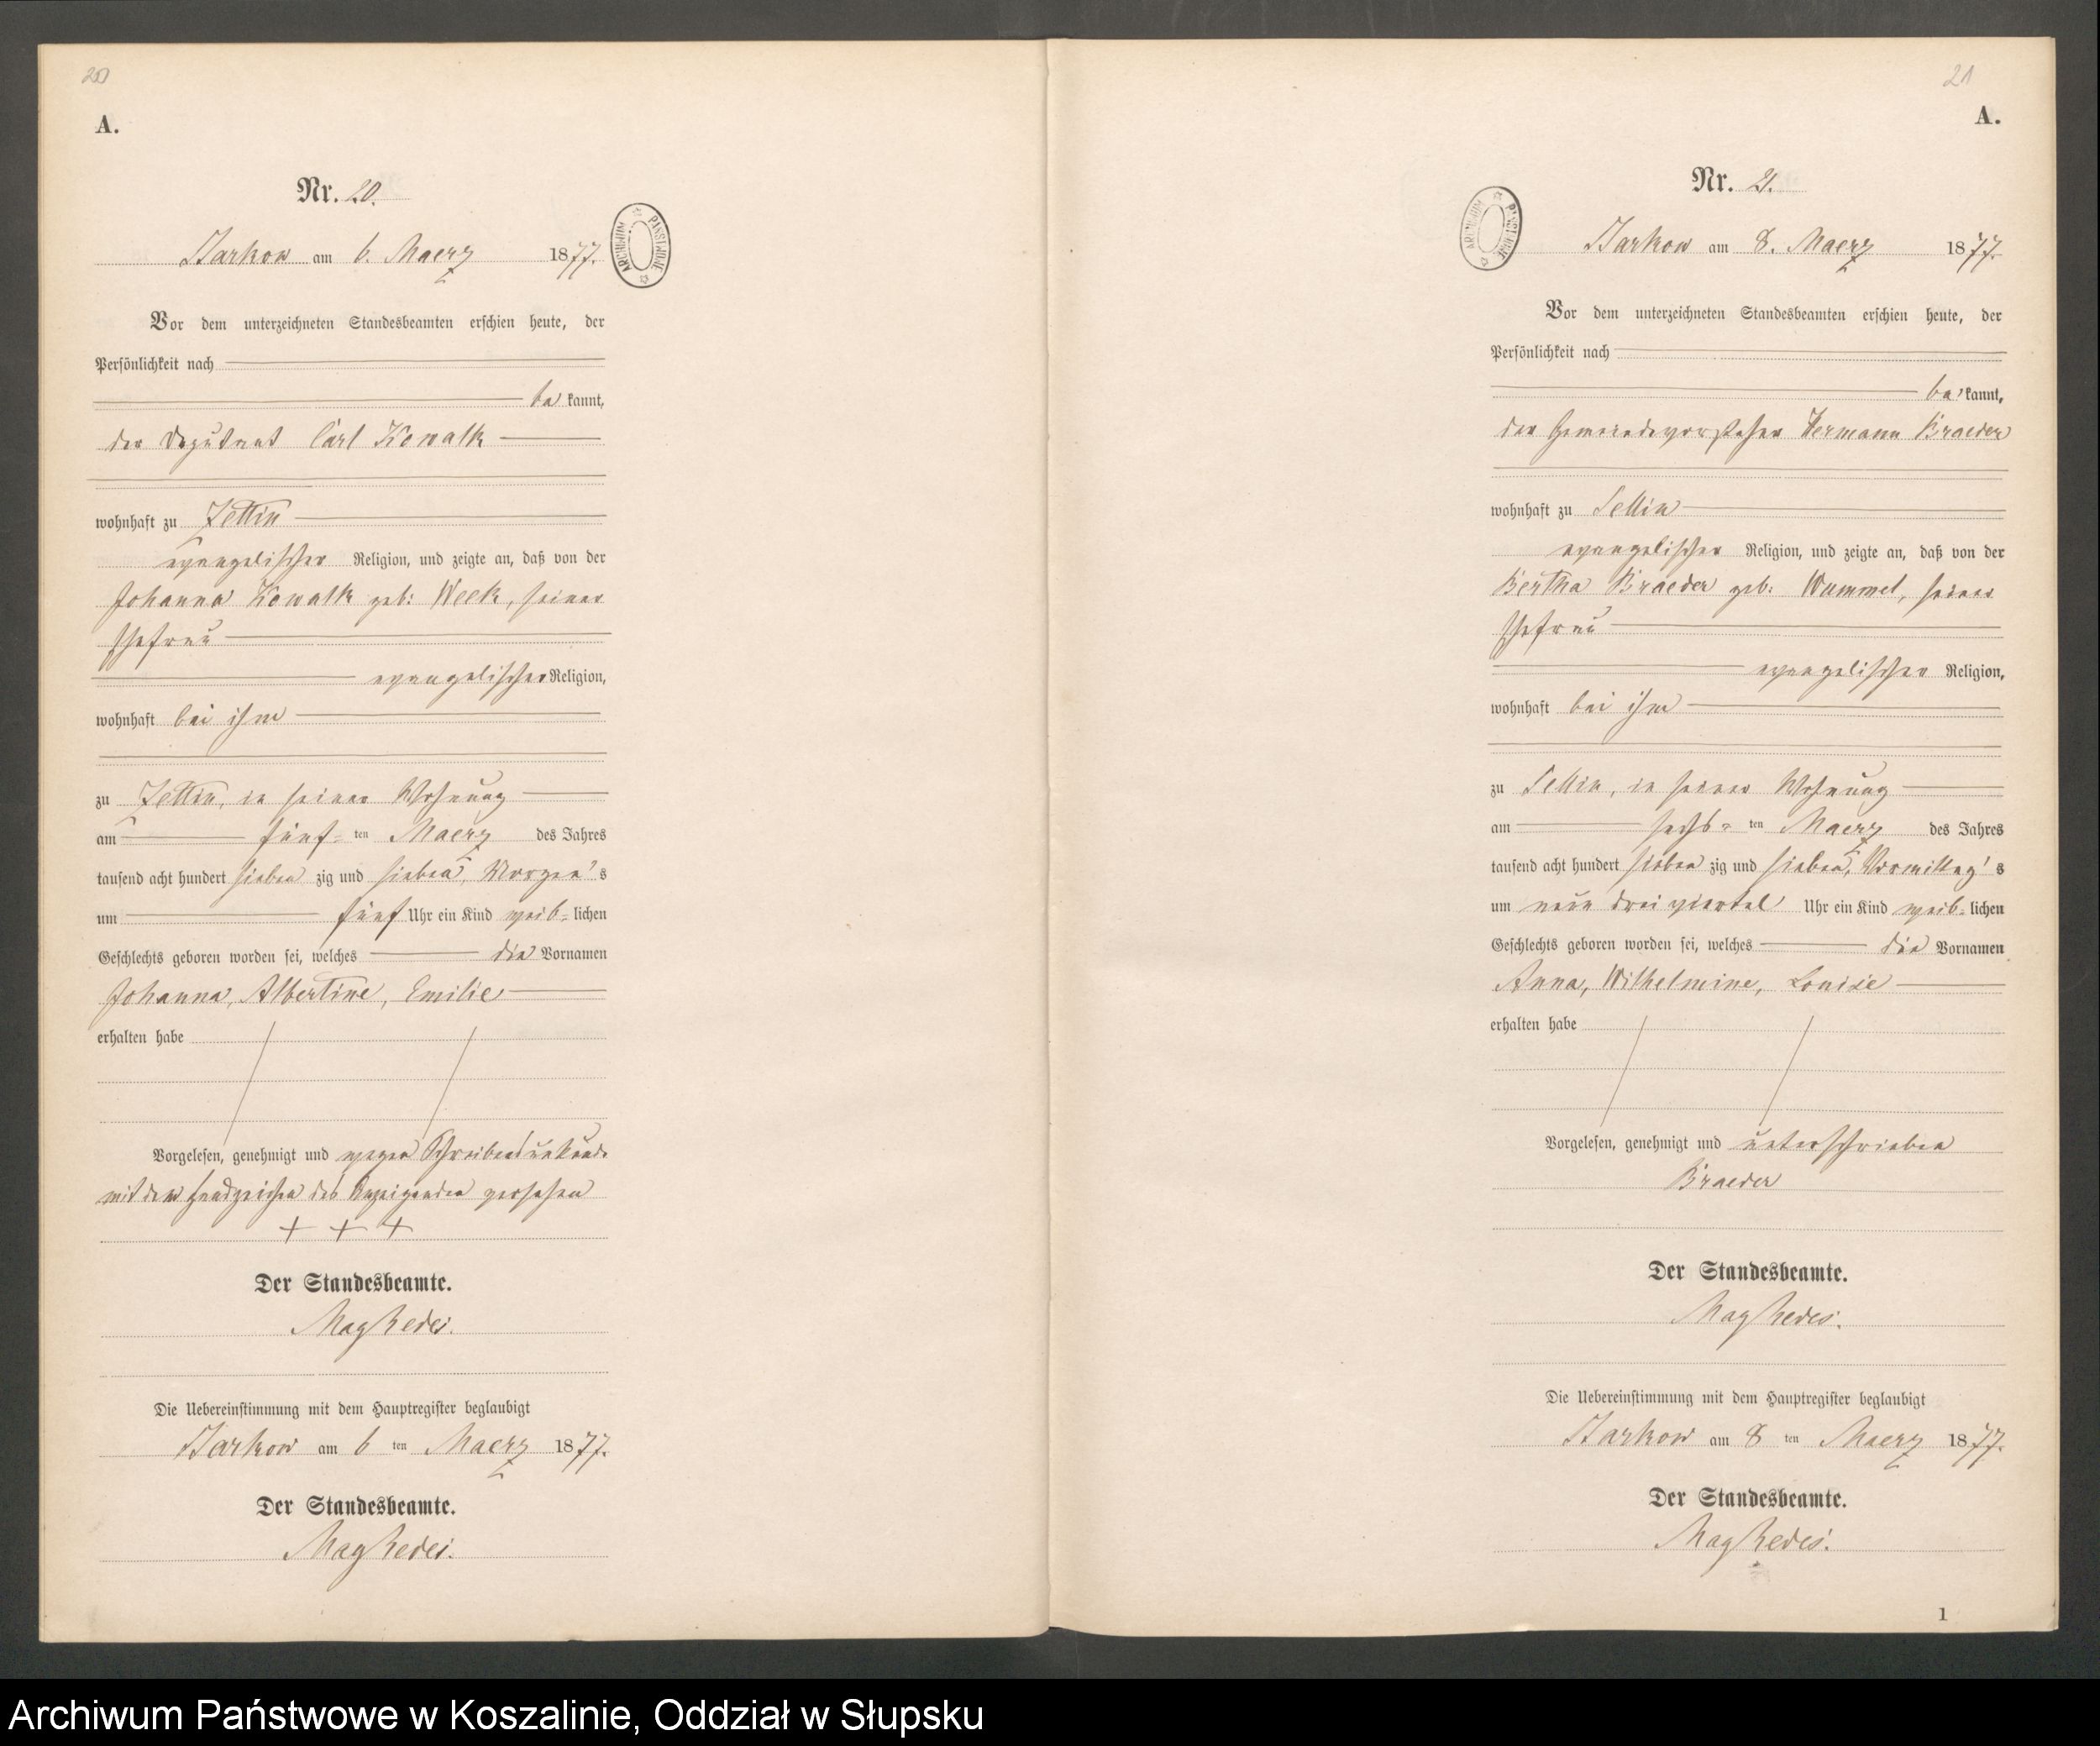 20
A.
Nr. 20.
Barkow am 6. Maerz 1877.
ARCHIWUM PAŃSTWOWE
Vor dem unterzeichneten Standesbeamten erschien heute, der
Persönlichkeit nach
be kannt,
der Deputant Carl Kowalk
wohnhaft zu Zettin
evangelischer Religion, und zeigte an, daß von der
Johanna Kowalk geb: Week, seiner
Ehefrau
evangelischer Religion,
wohnhaft bei ihm
zu Zettin, in seiner Wohnung
am fünf- ten Maerz des Jahres
tausend acht hundert sieben zig und sieben, Morgen's
um fünf Uhr ein Kind weib-lichen
Geschlechts geboren worden sei, welches die Vornamen
Johanna, Albertine, Emilie
erhalten habe
Vorgelesen, genehmigt und wegen Schreibensunkunde
mit dem Handzeichen des Anzeigenden versehen
+ + +
Der Standesbeamte.
Die Uebereinstimmung mit dem Hauptregister beglaubigt
Barkow am 6 ten Maerz 1877.
Der Standesbeamte.
21
A.
Nr. 21.
Barkow am 8. Maerz 1877.
ARCHIWUM PAŃSTWOWE
Vor dem unterzeichneten Standesbeamten erschien heute, der
Persönlichkeit nach
be kannt,
der Gemeindevorsteher Hermann Braeder
wohnhaft zu Sellin
evangelischer Religion, und zeigte an, daß von der
Bertha Braeder geb: Wummel, seiner
Ehefrau
evangelischer Religion,
wohnhaft bei ihm
zu Sellin, in seiner Wohnung
am sechs- ten Maerz des Jahres
tausend acht hundert sieben zig und sieben, Vormittag's
um neun dreiviertel Uhr ein Kind weib-lichen
Geschlechts geboren worden sei, welches die Vornamen
Anna, Wilhelmine, Louise
erhalten habe
Vorgelesen, genehmigt und unterschrieben
Braeder
Der Standesbeamte.
Die Uebereinstimmung mit dem Hauptregister beglaubigt
Barkow am 8 ten Maerz 1877.
Der Standesbeamte.
1
Archiwum Państwowe w Koszalinie, Oddział w Słupsku